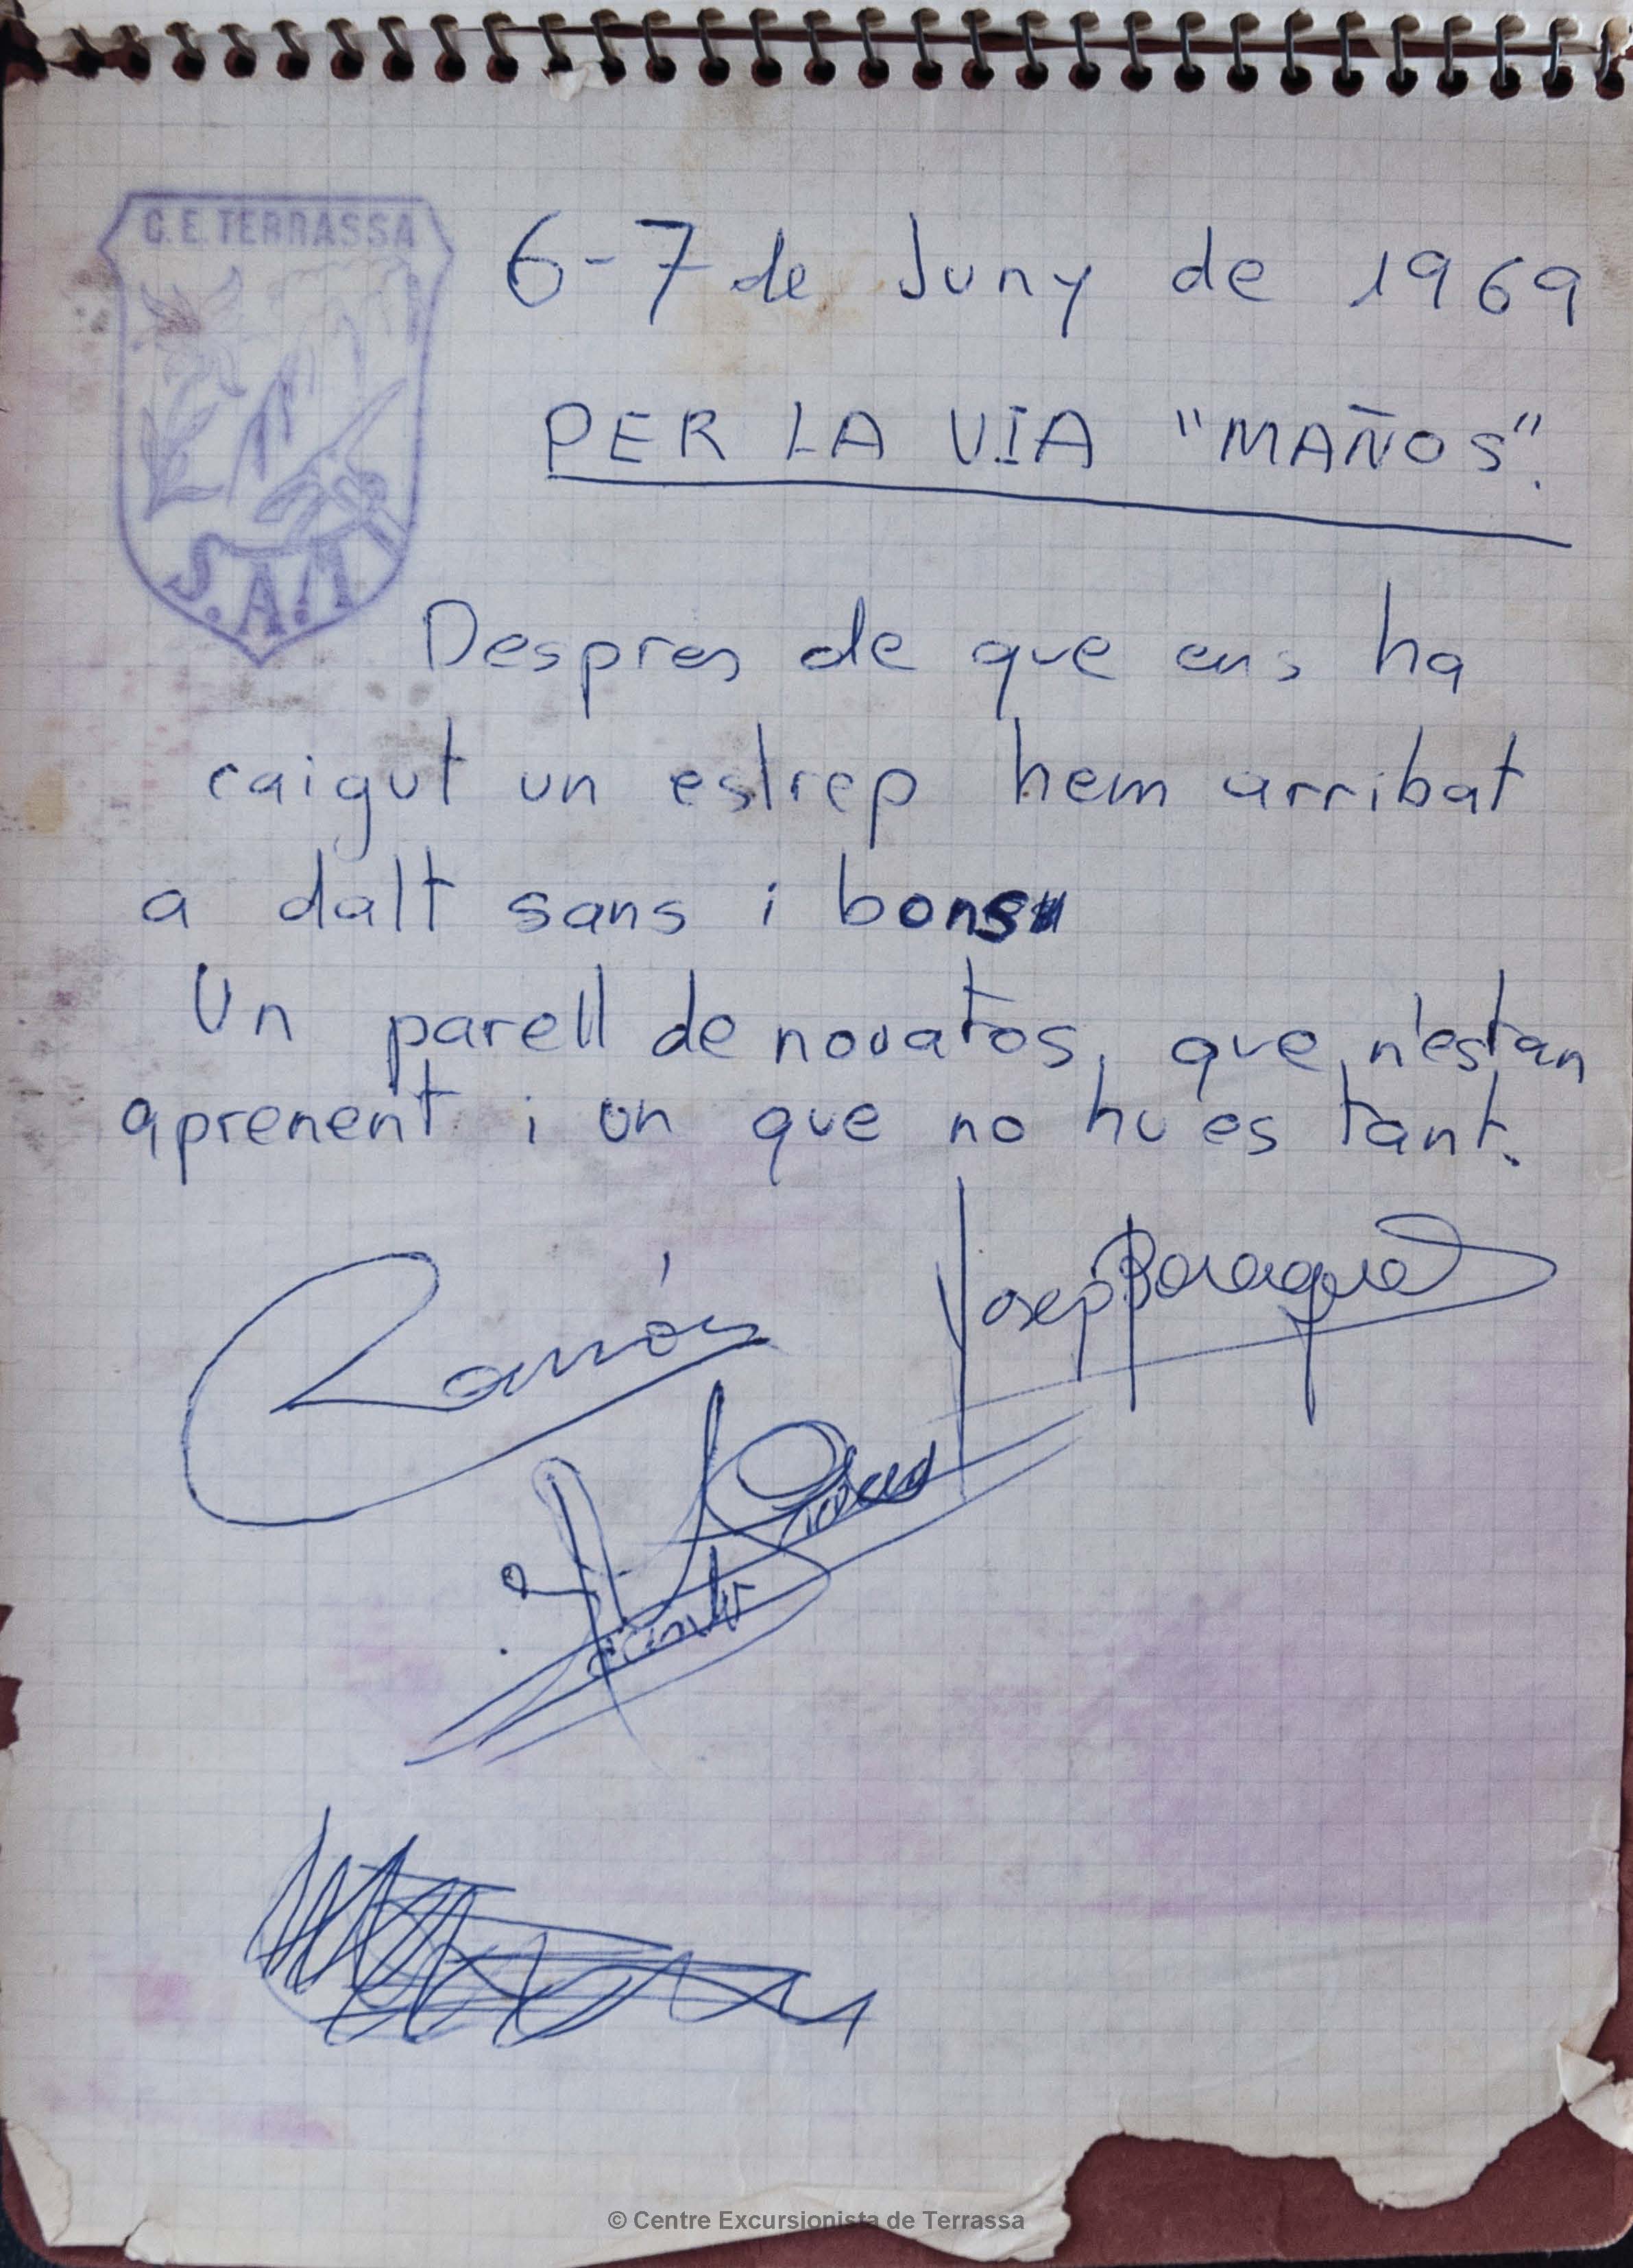 C.E. TERRASSA
S.A.T
6-7 de Juny de 1969
PER LA VIA "MAÑOS".
Despres de que ens ha
caigut un estrep hem arribat
a dalt sans i bons
Un parell de novatos, que n'estan
aprenent i un que no hu es tant.
Ramón
Josep Baraque
Jacinto
© Centre Excursionista de Terrassa